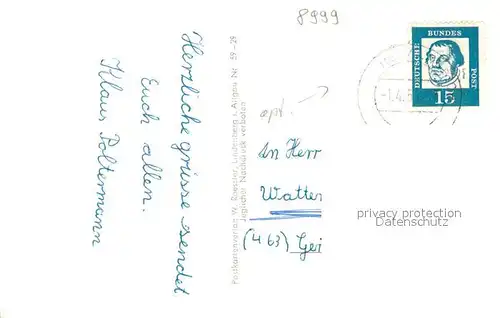 8999
DEUTSCHE
BUNDES
POST
15
-1.4.
Herzliche grüsse sendet
Euch allen.
Klaus Poltermann
Postkartenverlag W. Roessler, Lindenberg i. Allgäu Nr. 59-25
Jeglicher Nachdruck verboten
An Herr
Watter
(463) Gei
privacy protection
Datenschutz